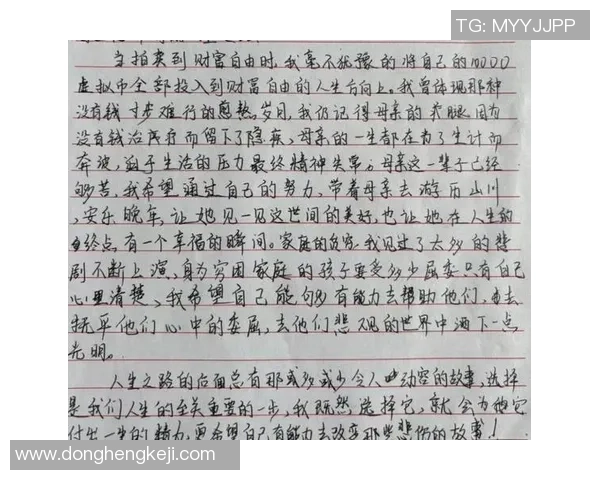 TG: MYYJJPP
当拍卖到财富自由时,我毫不犹豫的将自己的10000
虚拟币全部投入到财富自由的人生方向上。我曾体现那种
没有钱寸步难行的煎熬岁月,我仍记得母亲的 腿因为
没有钱治疗而留下了隐疾、母亲的一生都在为了生计而
奔波,迫于生活的压力最终精神失常。母亲这一辈子已经
够苦,我希望通过自己的努力,带着母亲去游历山川
,安乐晚年,让她见一见这世间的美好,也让她在人生的
终点有一个幸福的瞬间。家庭的贫穷,我见过了太多的悲
剧不断上演、身为穷困家庭的孩子要受多少屈委只有自己
心里清楚、我希望自己能够有能力去帮助他们,去
抚平他们心中的委屈,去他们悲观的世界中洒下一点
光明。
人生之路的后面总有那或多或少令人动容的故事,选择
是我们人生的至关重要的一步,我既然选择它,就会为他穷
付出一生的精力,更希望自己有能力去改变那些悲伤的故事!
www.donghengkeji.com